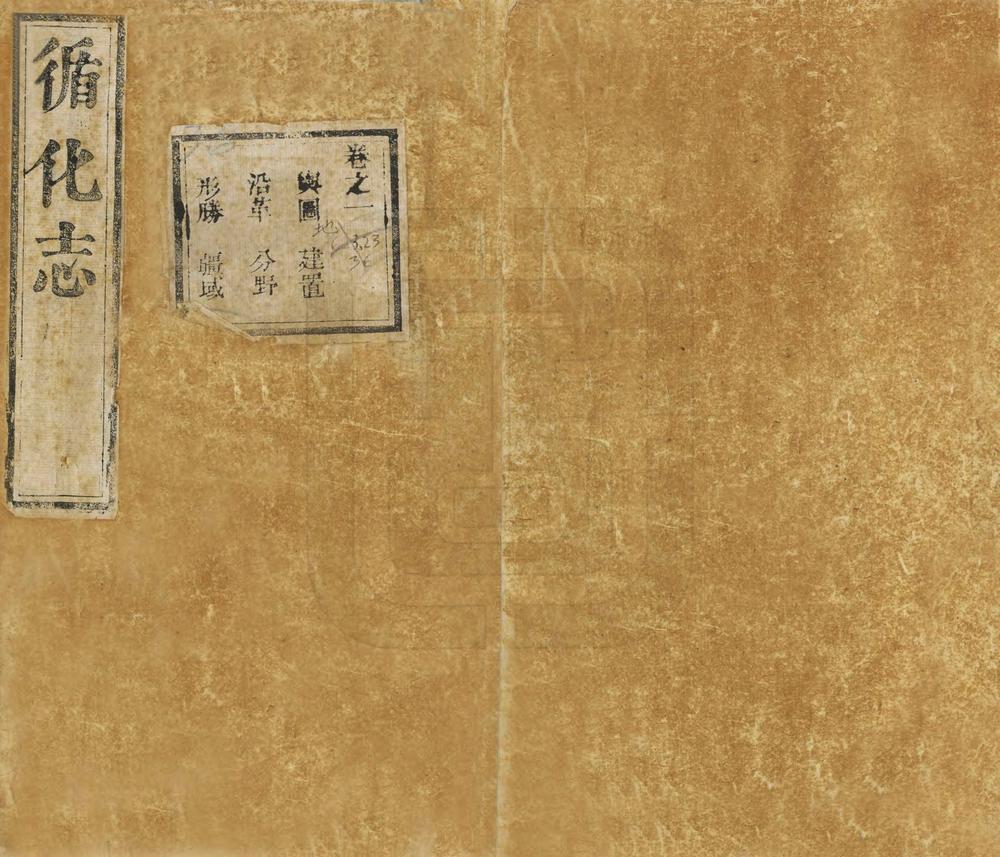 循化志
卷之一
輿圖 建置
沿革 分野
形勝 疆域
地